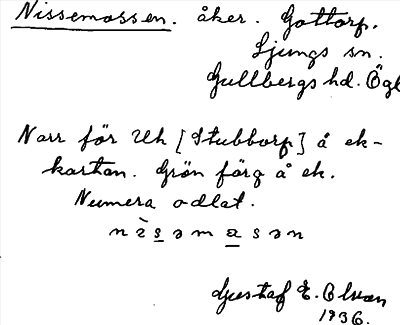 Nissemossen. åker. Gottorp.
Ljungs sn.
Gullbergs hd. Ögl
Norr för Uh [Stubborp] å ek-
kartan. Grön färg å ek.
Numera odlat.
Gustaf E. Olson
1936.